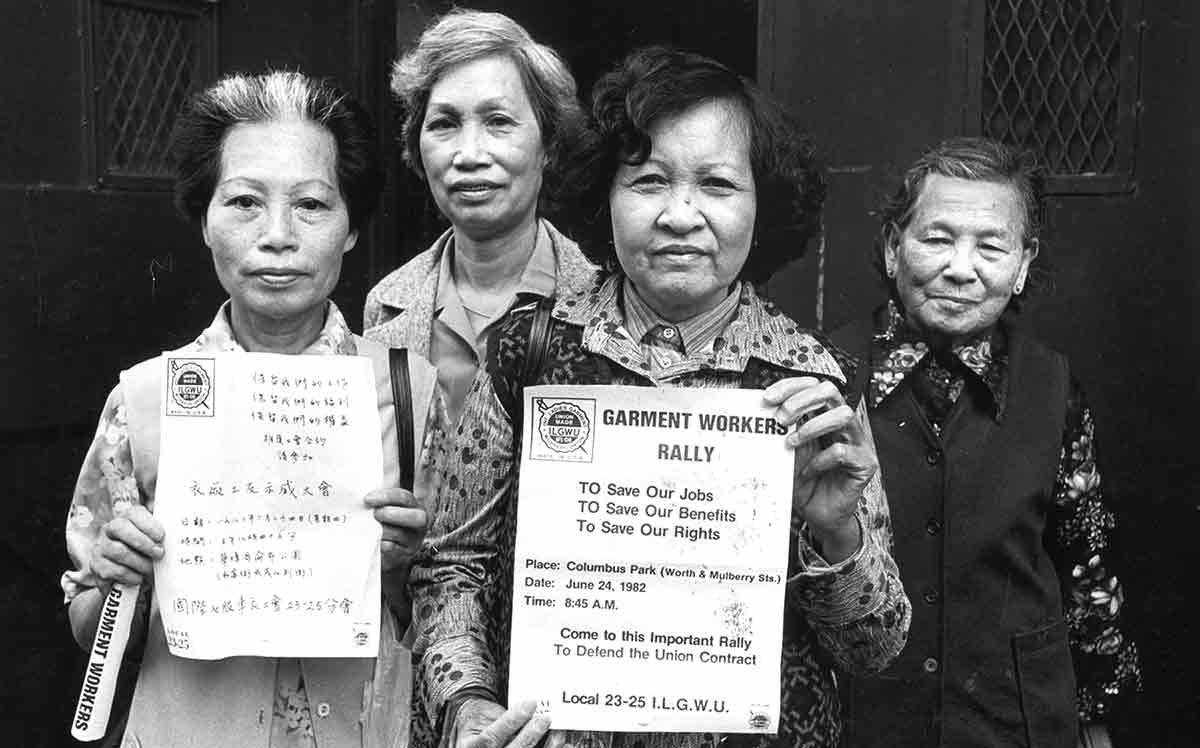 UNION MADE
ILGWU
保留我們的工作
保留我們的福利
保留我們的權益
維護工會合約
請參加
衣廠工友示威大會
時間:上午八時四十五分
地點:華埠哥倫布公園
國際女服車衣工會23-25分會
LOCAL
23-25
GARMENT WORKERS
UNION MADE
ILGWU
MADE IN U.S.A.
GARMENT WORKERS
RALLY
TO Save Our Jobs
TO Save Our Benefits
To Save Our Rights
Place: Columbus Park (Worth & Mulberry Sts.)
Date: June 24, 1982
Time: 8:45 A.M.
Come to this Important Rally
To Defend the Union Contract
Local 23-25 I.L.G.W.U.